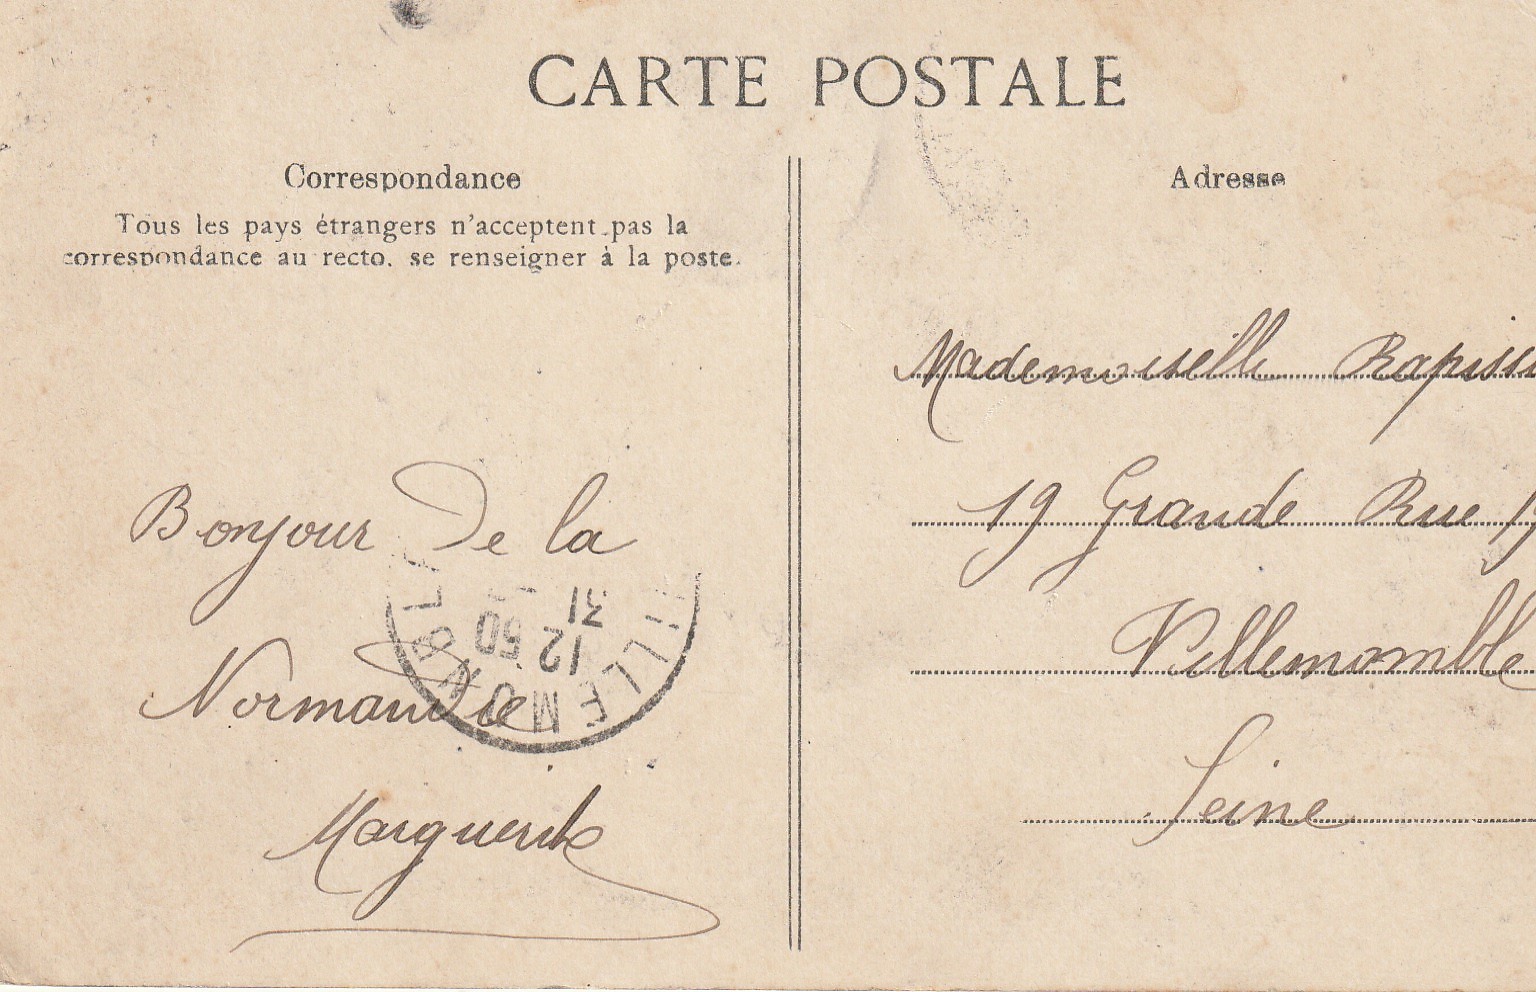 CARTE POSTALE
Correspondance
Tous les pays étrangers n'acceptent pas la
correspondance au recto. se renseigner à la poste.
Bonjour De la
Normandie
Marguerite
VILLEMOMBLE
12 50
31
Adresse
Mademoiselle
19 Grande Rue 19
Villemomble
Seine